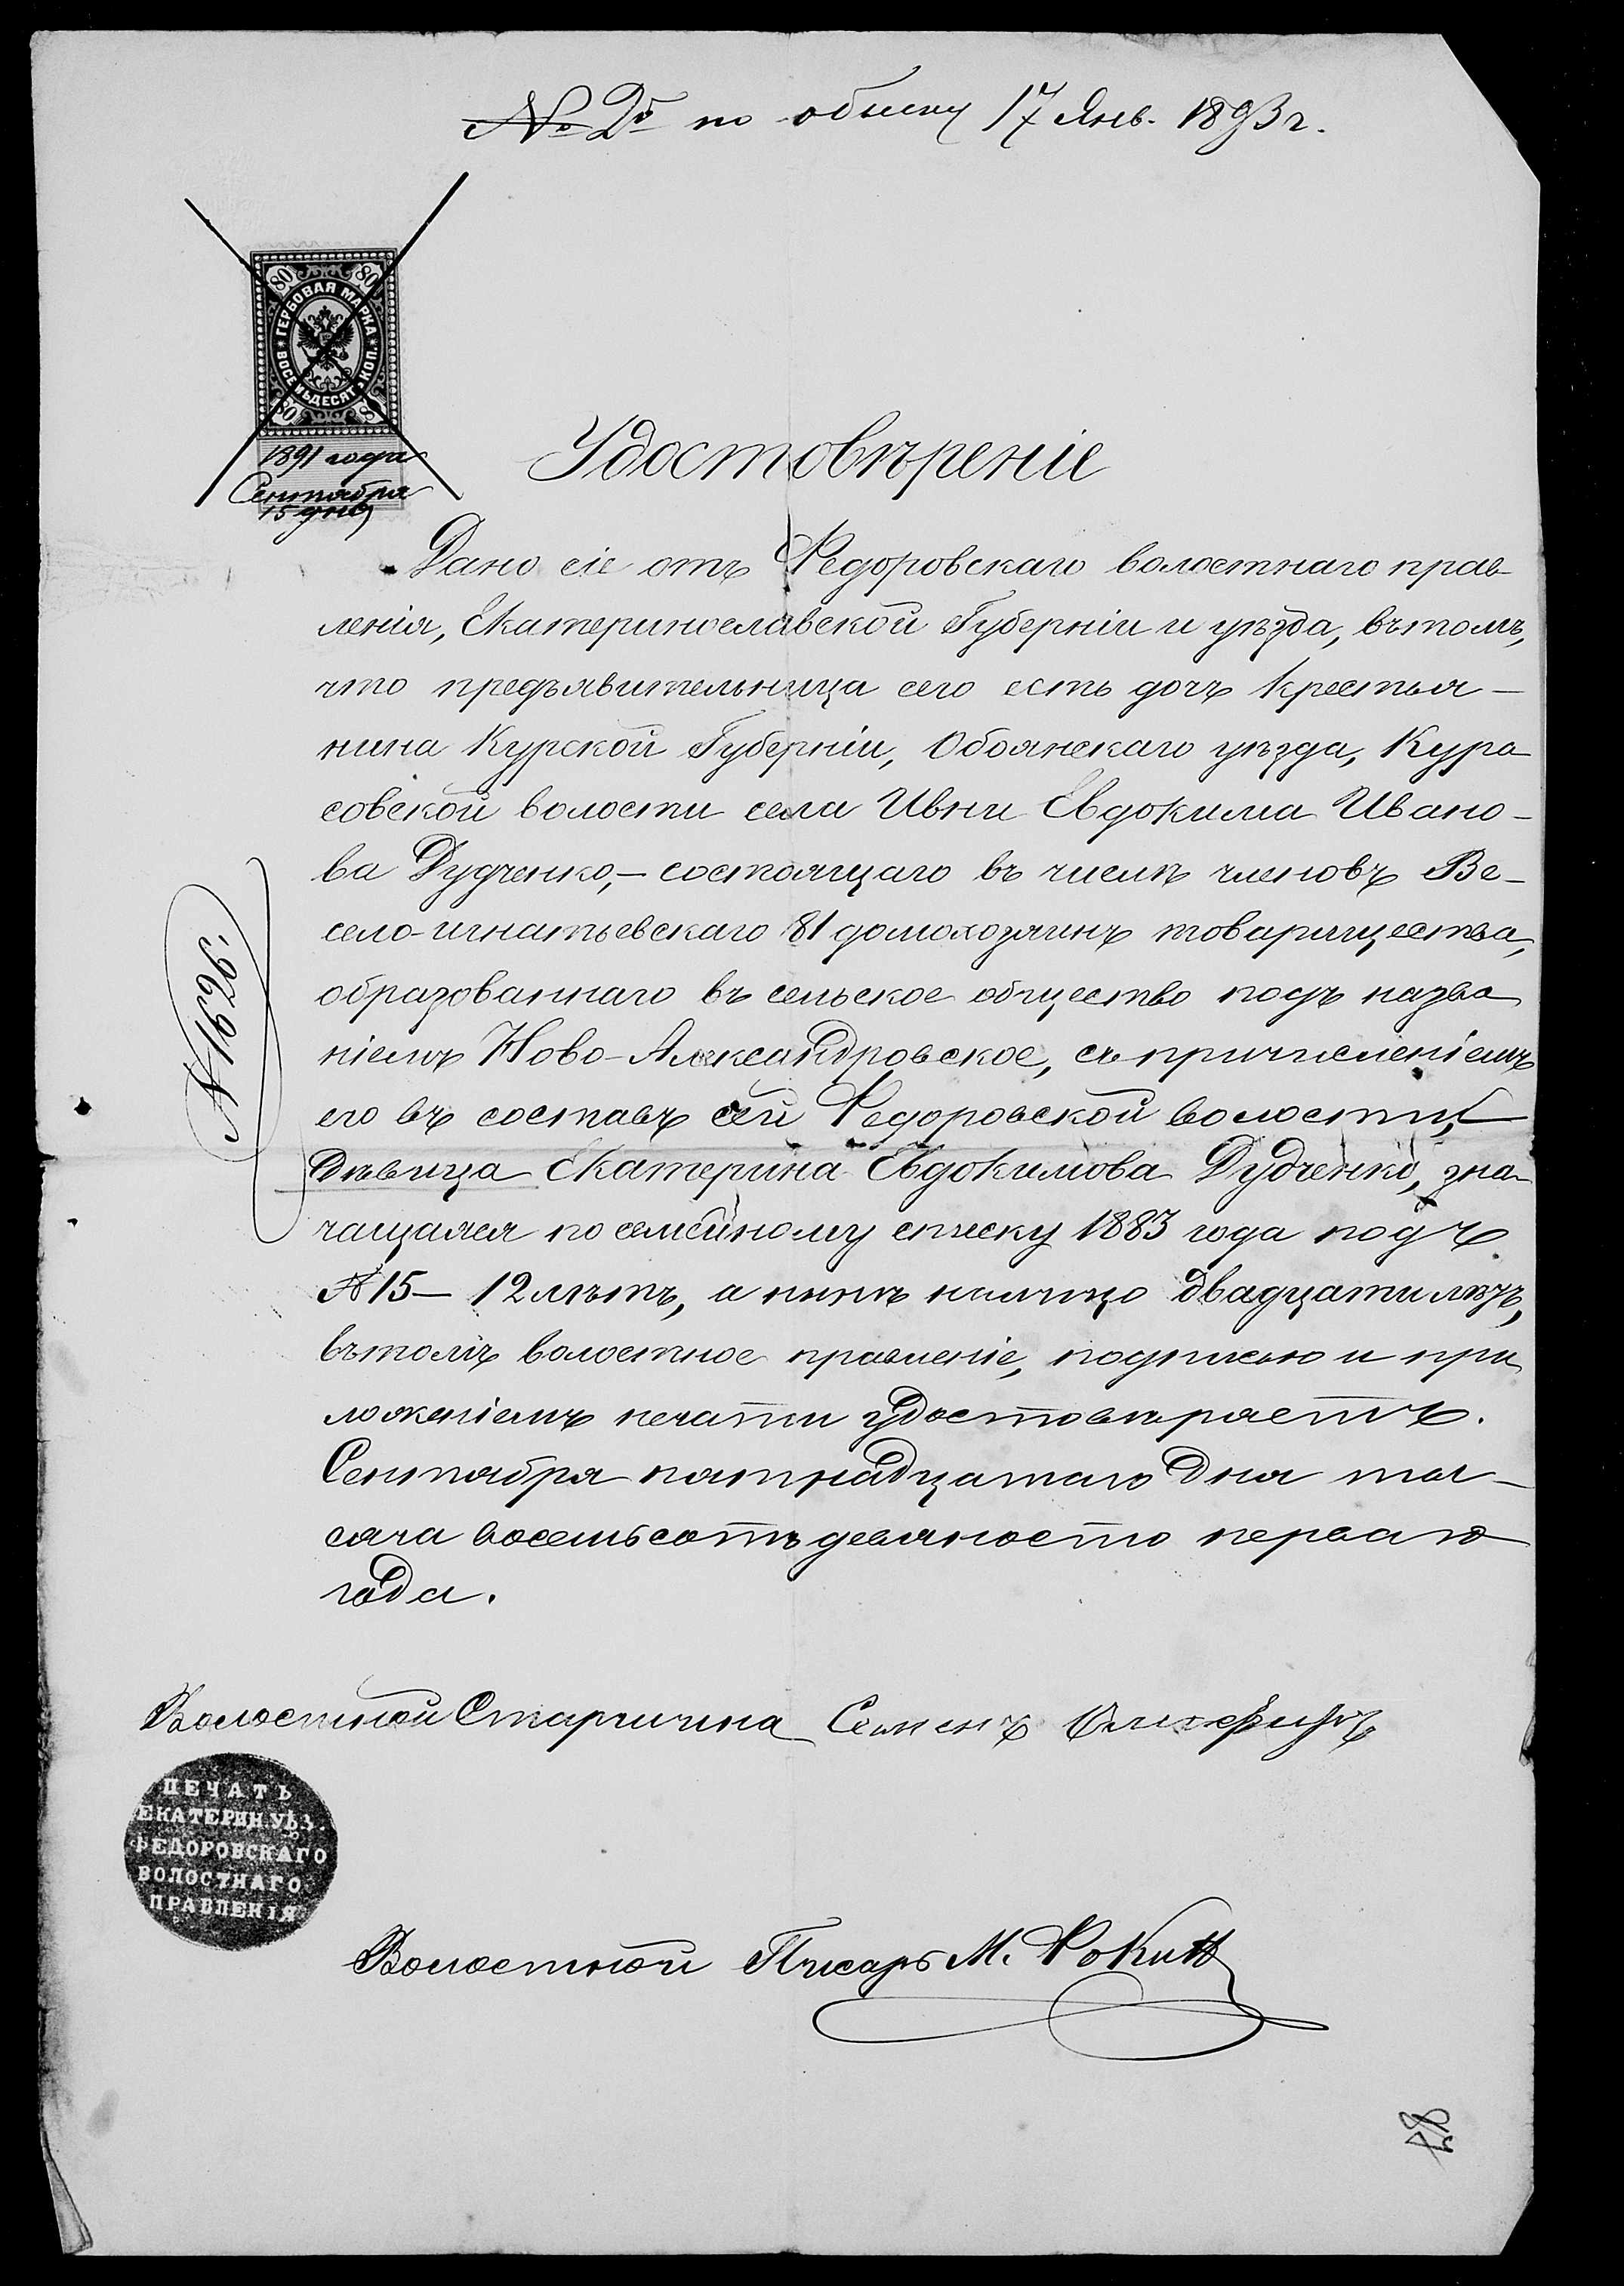 № 2й по обыску 17 Янв. 1893 г.
80 80
ГЕРБОВАЯ МАРКА
ВОСЕМЬДЕСЯТ КОП.
80 80
1891 года
Сентября
15 дня
Удостовѣреніе
Дано сіе отъ Федоровскаго волостнаго прав-
ленія, Екатеринославской Губерніи и уѣзда, въ томъ,
что предъявительница сего есть дочь крестья-
нина Курской Губерніи, Обоянскаго уѣзда, Кура
совской волости села Ивни Евдокима Ивано-
ва Дудченко,- состоящаго въ числѣ членовъ Ве-
село-игнатьевскаго 81 домохозяинъ товарищества,
образованнаго въ сельское общество подъ назва
ніемъ Ново-Александровское, съ причисленіемъ
его въ составъ сей Федоровской волости,
Дѣвица Екатерина Евдокимова Дудченко, зна-
чащаяся по семейному списку 1883 года подъ
№ 15 - 12 лѣтъ, а нынѣ налицо двадцати лѣтъ,
въ томъ волостное правленіе, подписью и при
ложеніемъ печати удостовѣряетъ.
Сентября пятнадцатаго дня ты-
сяча восемьсотъ девяносто перваго
года.
№ 1629.
Волостной Старшина Семенъ
ПЕЧАТЬ
ЕКАТЕРИН. УѢЗ.
ФЕДОРОВСКАГО
ВОЛОСТНАГО
ПРАВЛЕНІЯ
Волостной Писарь М. Фокин